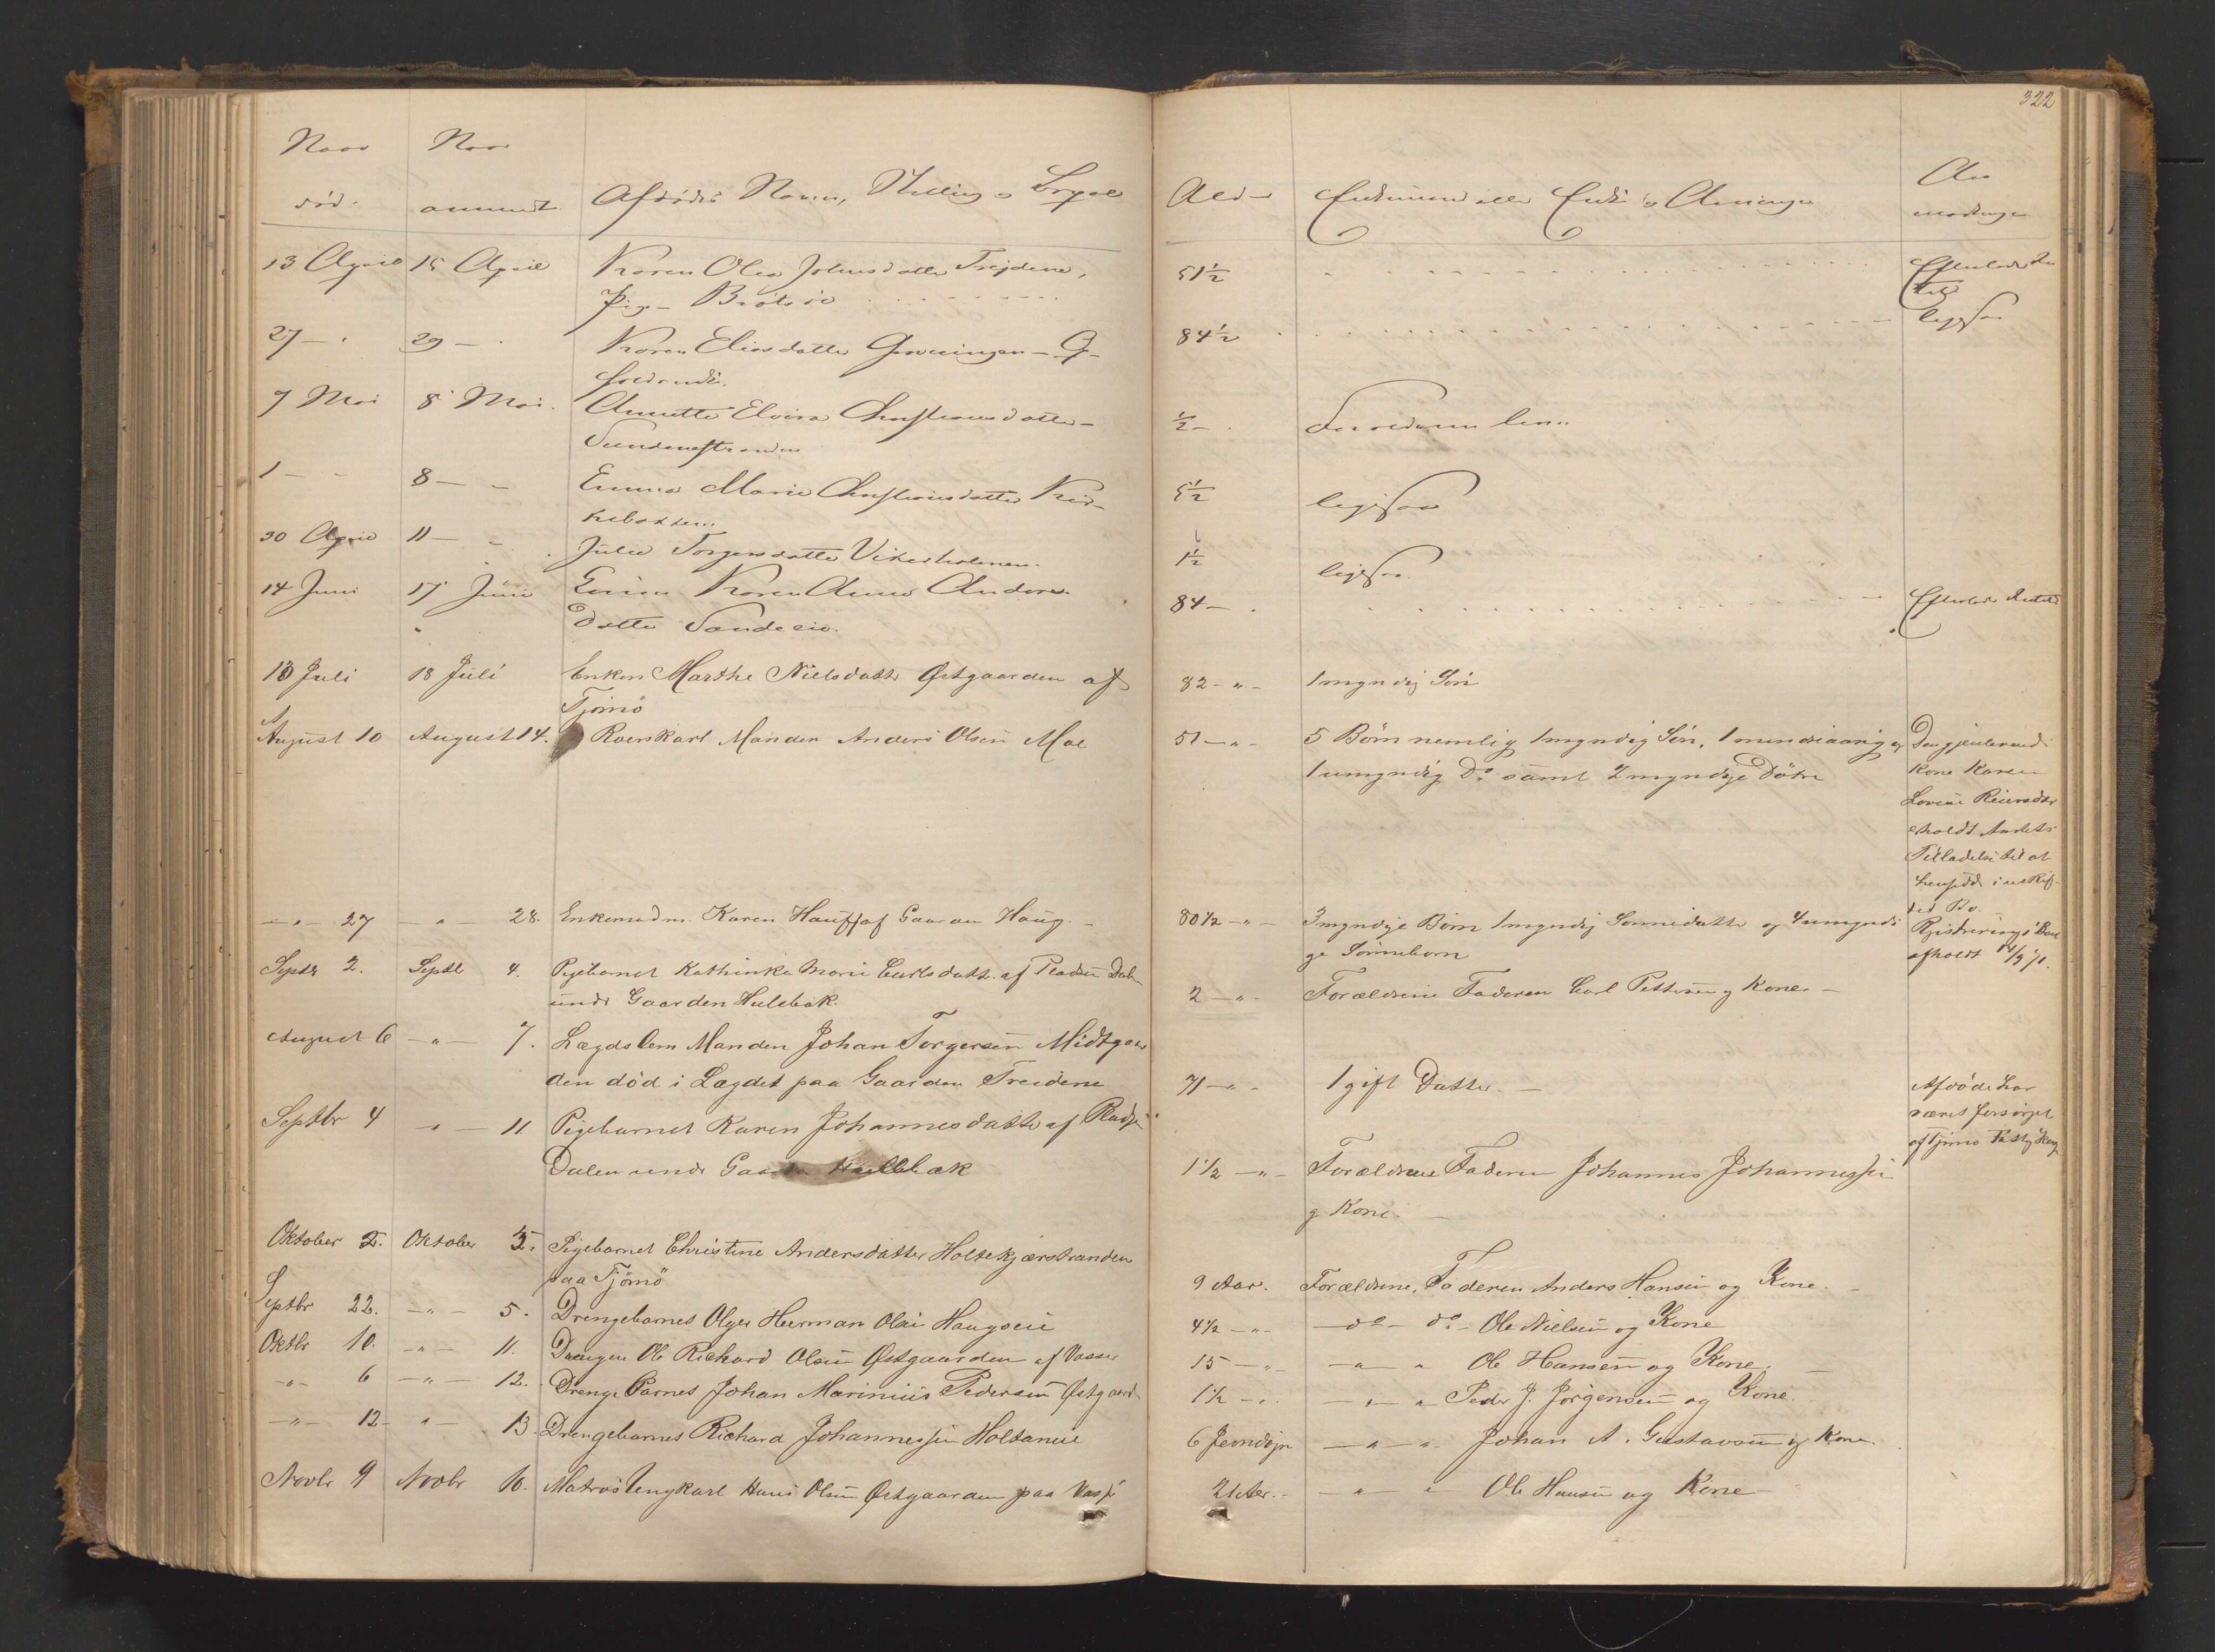 322
Naar Naar
død. anmeldt Afdødes Navn, Stilling og Bopæl
Alder Enkemand eller Enke og Arvinger An
mærkninger
13 April 15 April Karen Olea Johnsdatter Treidene,
Pige - Brøtsø
51½ Efterlader Intet
27 - " 29 - " Karen Eliasdatter Grevningen - G
84½ ligesaa
7 Mai 8 Mai. Annette Elvira Christiansdatter -
Sundenestranden
½ - Forældrene lever
1 - - 8 - - Emma Marie Christiansdatter Kir-
kebakken
5½ ligesaa
30 April 11 - - Julie Torgersdatter Vikerholmen.
1½ ligesaa
14 Juni 17 Juni Enken Karen Anne Anders-
datter Sandeeie.
84 - Efterlader Intet
13 Juli 18 Juli Enken Marthe Nielsdatter Østgaarden af
Tjømø
82 - " - 1 myndig Søn
August 10 August 14. Roerskarl Manden Anders Olsen Moe
51 - " - 5 Børn nemlig 1 myndig Søn, 1 mindreaarig og
1 umyndig Do samt 2 myndige Døtre
Den gjenlevende
Kone Karen
Lovise Reiersdtr
erholdt Amtets
Tilladelse til at
hensidde i uskif-
ted Bo.
- " - 27 - " - 28. Enkemadm. Karen Hauff af Gaarden Haug. -
80½ - " - 3 myndige Børn 1 myndig Sønnedatter og 4 umyndi
ge Sønnebørn
Registrerings
afholdt
Septbr 2. Septbr 4. Pigebarnet Kathinka Marie Carlsdatter af Pladsen Dalen
under Gaarden Hulebak.
2 - " - Forældrene Faderen Carl Pettersen og Kone -
August 6 - " - 7. Lægdslem Manden Johan Torgersen Midtgaar
den død i Lægdet paa Gaarden Treidene
71 - " - 1 gift Datter. -
Afdøde har
været forsørget
af Tjømø Fattig
Septbr 4 - " - 11. Pigebarnet Karen Johannesdatter af Pladsen
Dalen under Gaarden Huelebak
1½ - " - Forældrene Faderen Johannes Johannessen
og Kone -
Oktober 2. Oktober 5. Pigebarnet Christine Andersdatter Holtekjærstranden
paa Tjømø
9 Aar. Forældrene, Faderen Anders Hansen og Kone. -
Septbr 22. - " - 5. Drengebarnet Olger Herman Olsen Haugseie
4½ - " - - do - do - Ole Nielsen og Kone
Oktbr 10. - " - 11. Drengen Ole Richard Olsen Østgaarden af Vasser
15 - " - - " - " Ole Hansen og Kone. -
- " - 6 - " - 12. Drengebarnet Johan Marinius Pedersen Østgaard
1½ - " - " - " Peder J. Jørgensen og Kone.
- " - 12 - " - 13. Drengebarnet Richard Johannessen Holtaneie
6 Jevndøgn - " - " - Johan A. Gustavsen og Kone.
Novbr 9 Novbr 10. Matros Ungkarl Hans Olsen Østgaarden paa Vasser
21 Aar. - - " - " Ole Hansen og Kone -